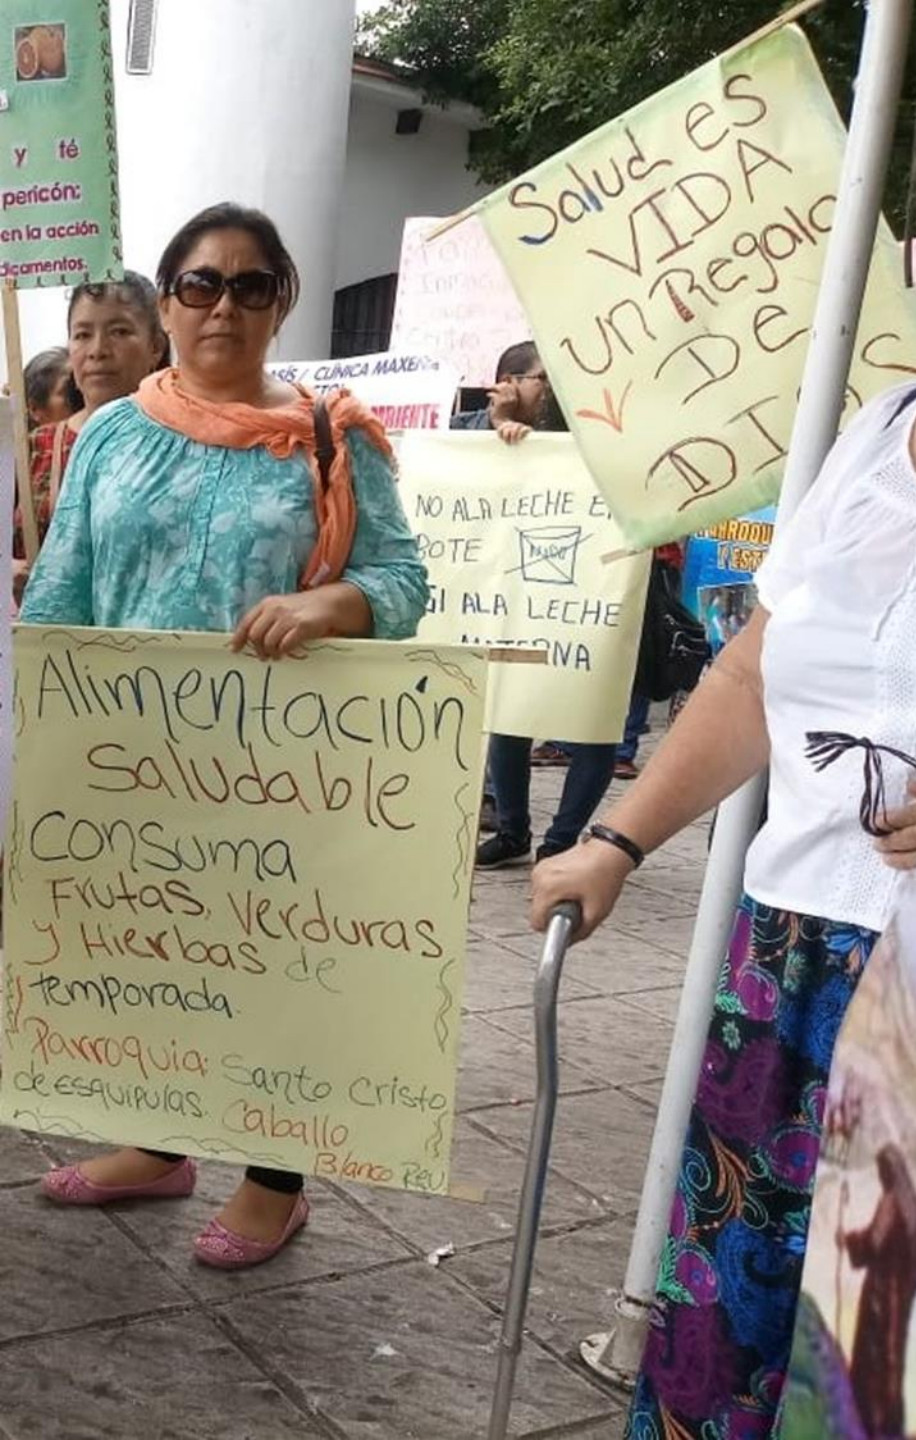 y té
pericón:
en la acción
dicamentos.
Salud es
VIDA
un Regalo
DE
DIOS
CLÍNICA MAXEÑA
NO A LA LECHE E
BOTE
SI A LA LECHE
MATERNA
Alimentación
Saludable
Consuma
Frutas, Verduras
y Hierbas de
temporada.
Parroquia: Santo Cristo
de ESQUIPULAS. Caballo
Blanco Reu